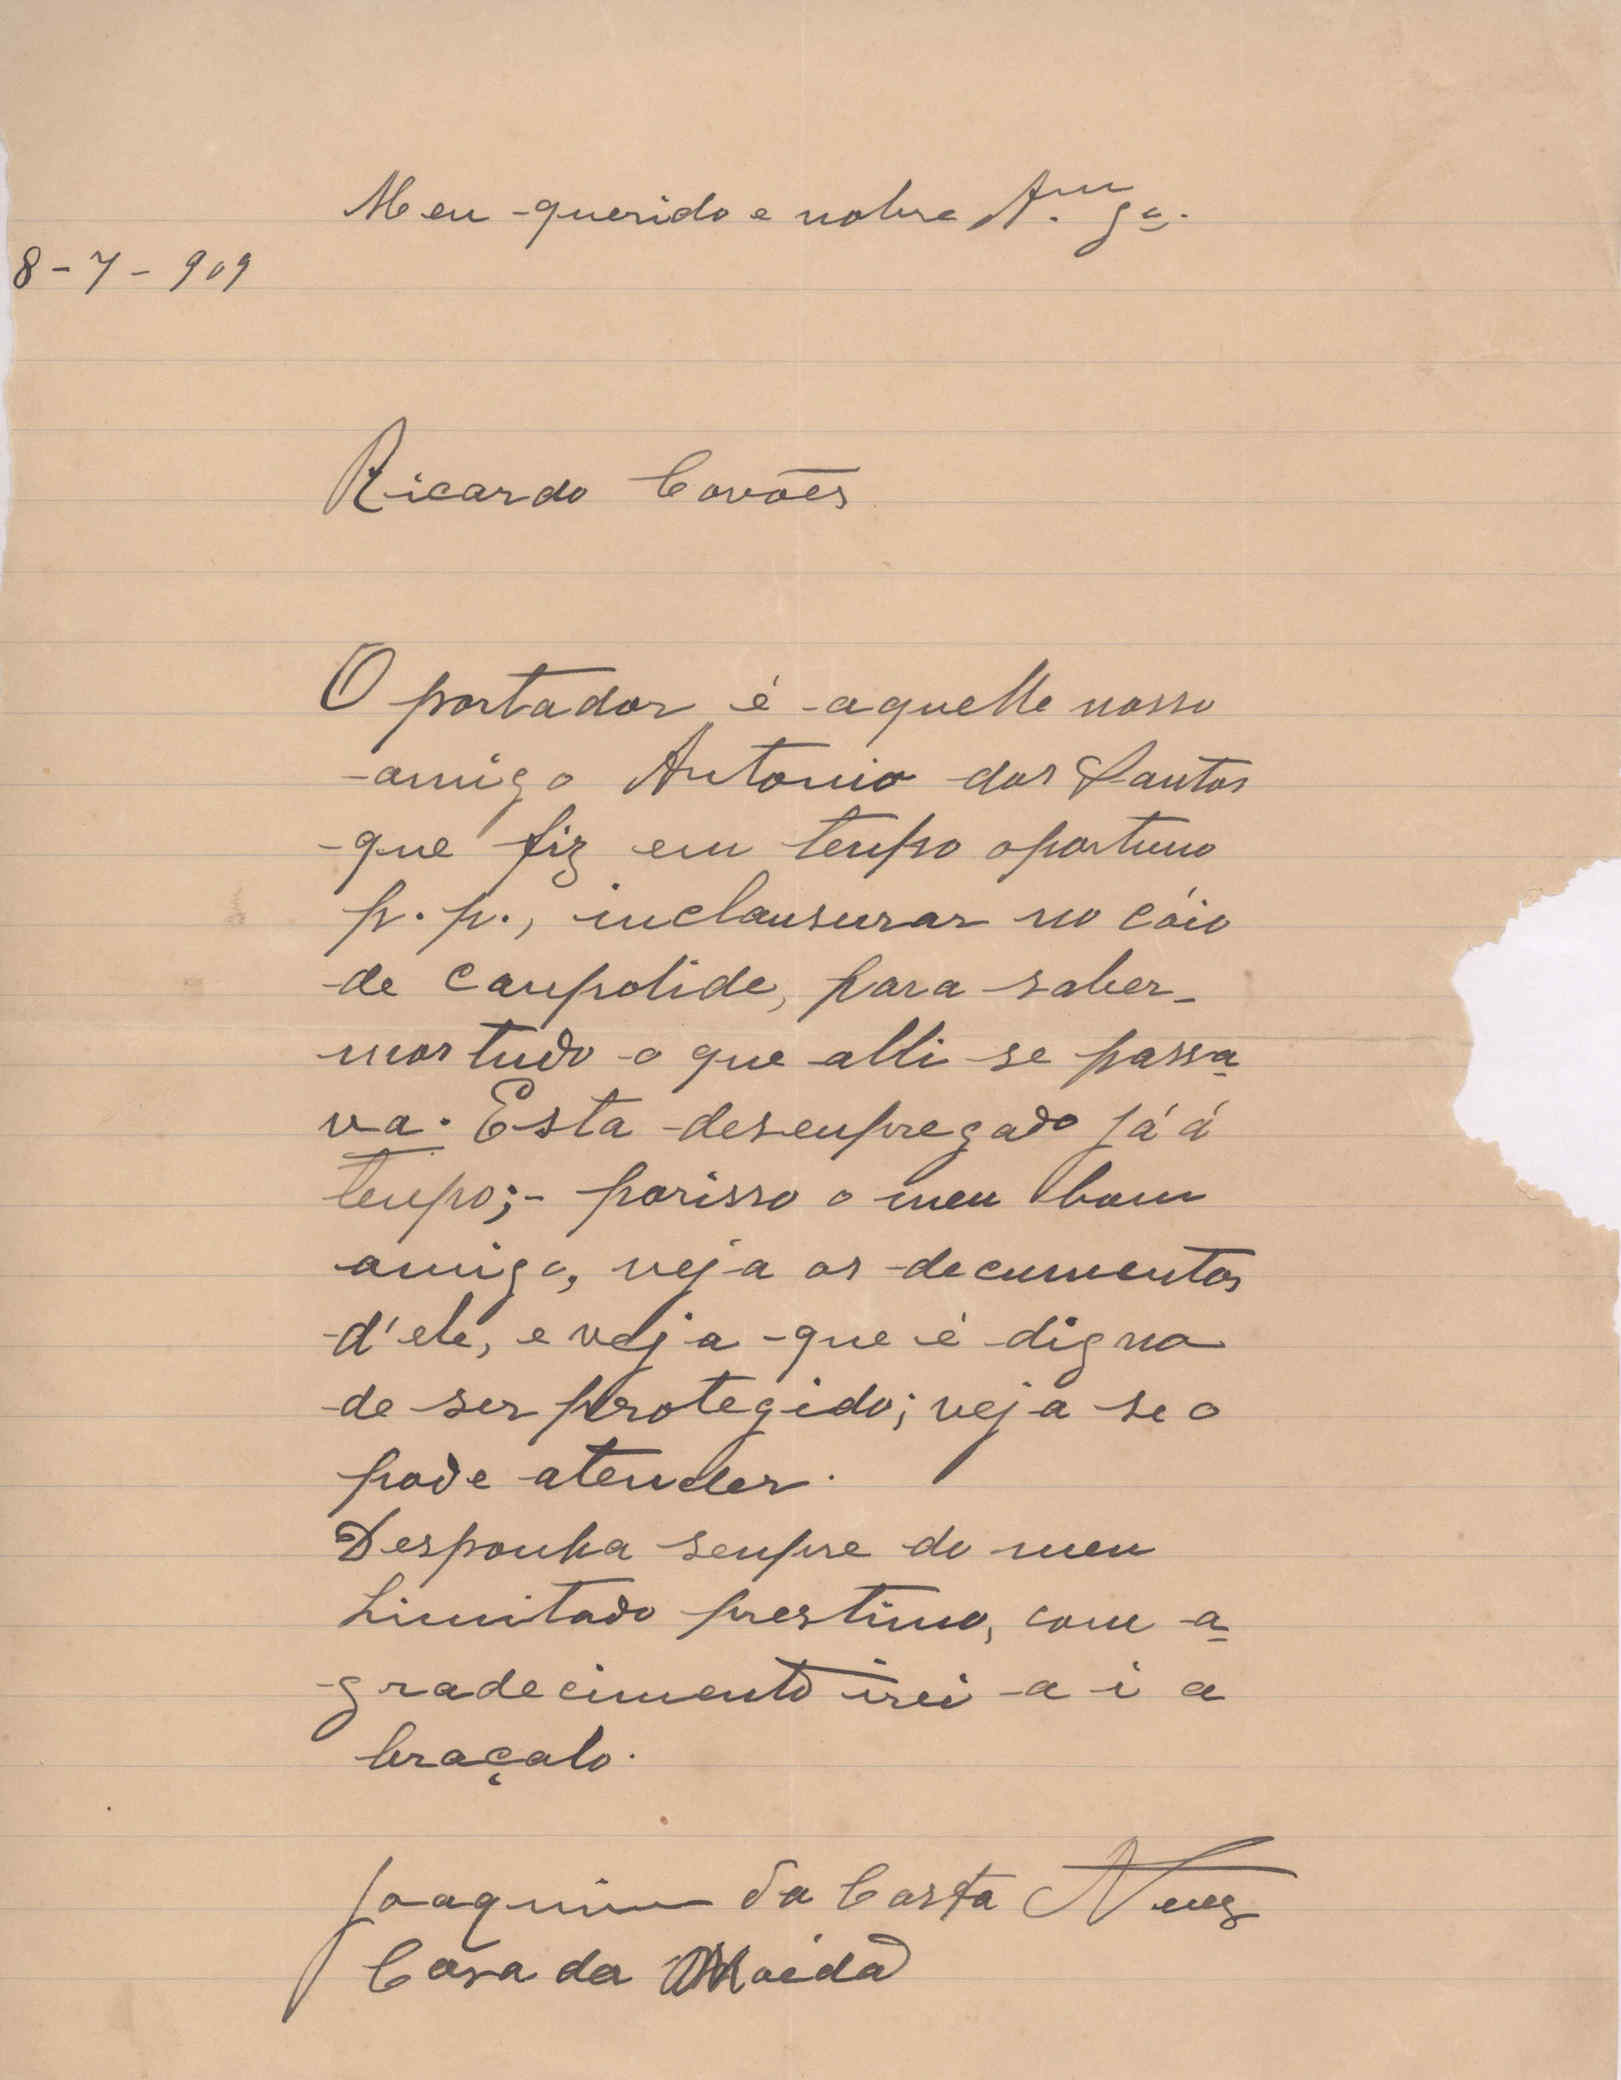 Meu querido e nobre Am.go.
8-7-909
Ricardo Covões
O portador é aquelle nosso
amigo Antonio dos Santos
que fiz em tempo oportuno
p. p., inclausurar no cóio
de campolide, para saber-
mos tudo o que alli se passa-
va. Esta desempregado já á
tempo;- porisso o meu bom
amigo, veja os documentos
d'ele, e veja que é digno
de ser protegido; veja se o
pode atender.
Desponha sempre do meu
Limitado prestimo, com a-
gradecimento irei a i a
braçalo.
Joaquim da Costa Neves
Casa da Moeda